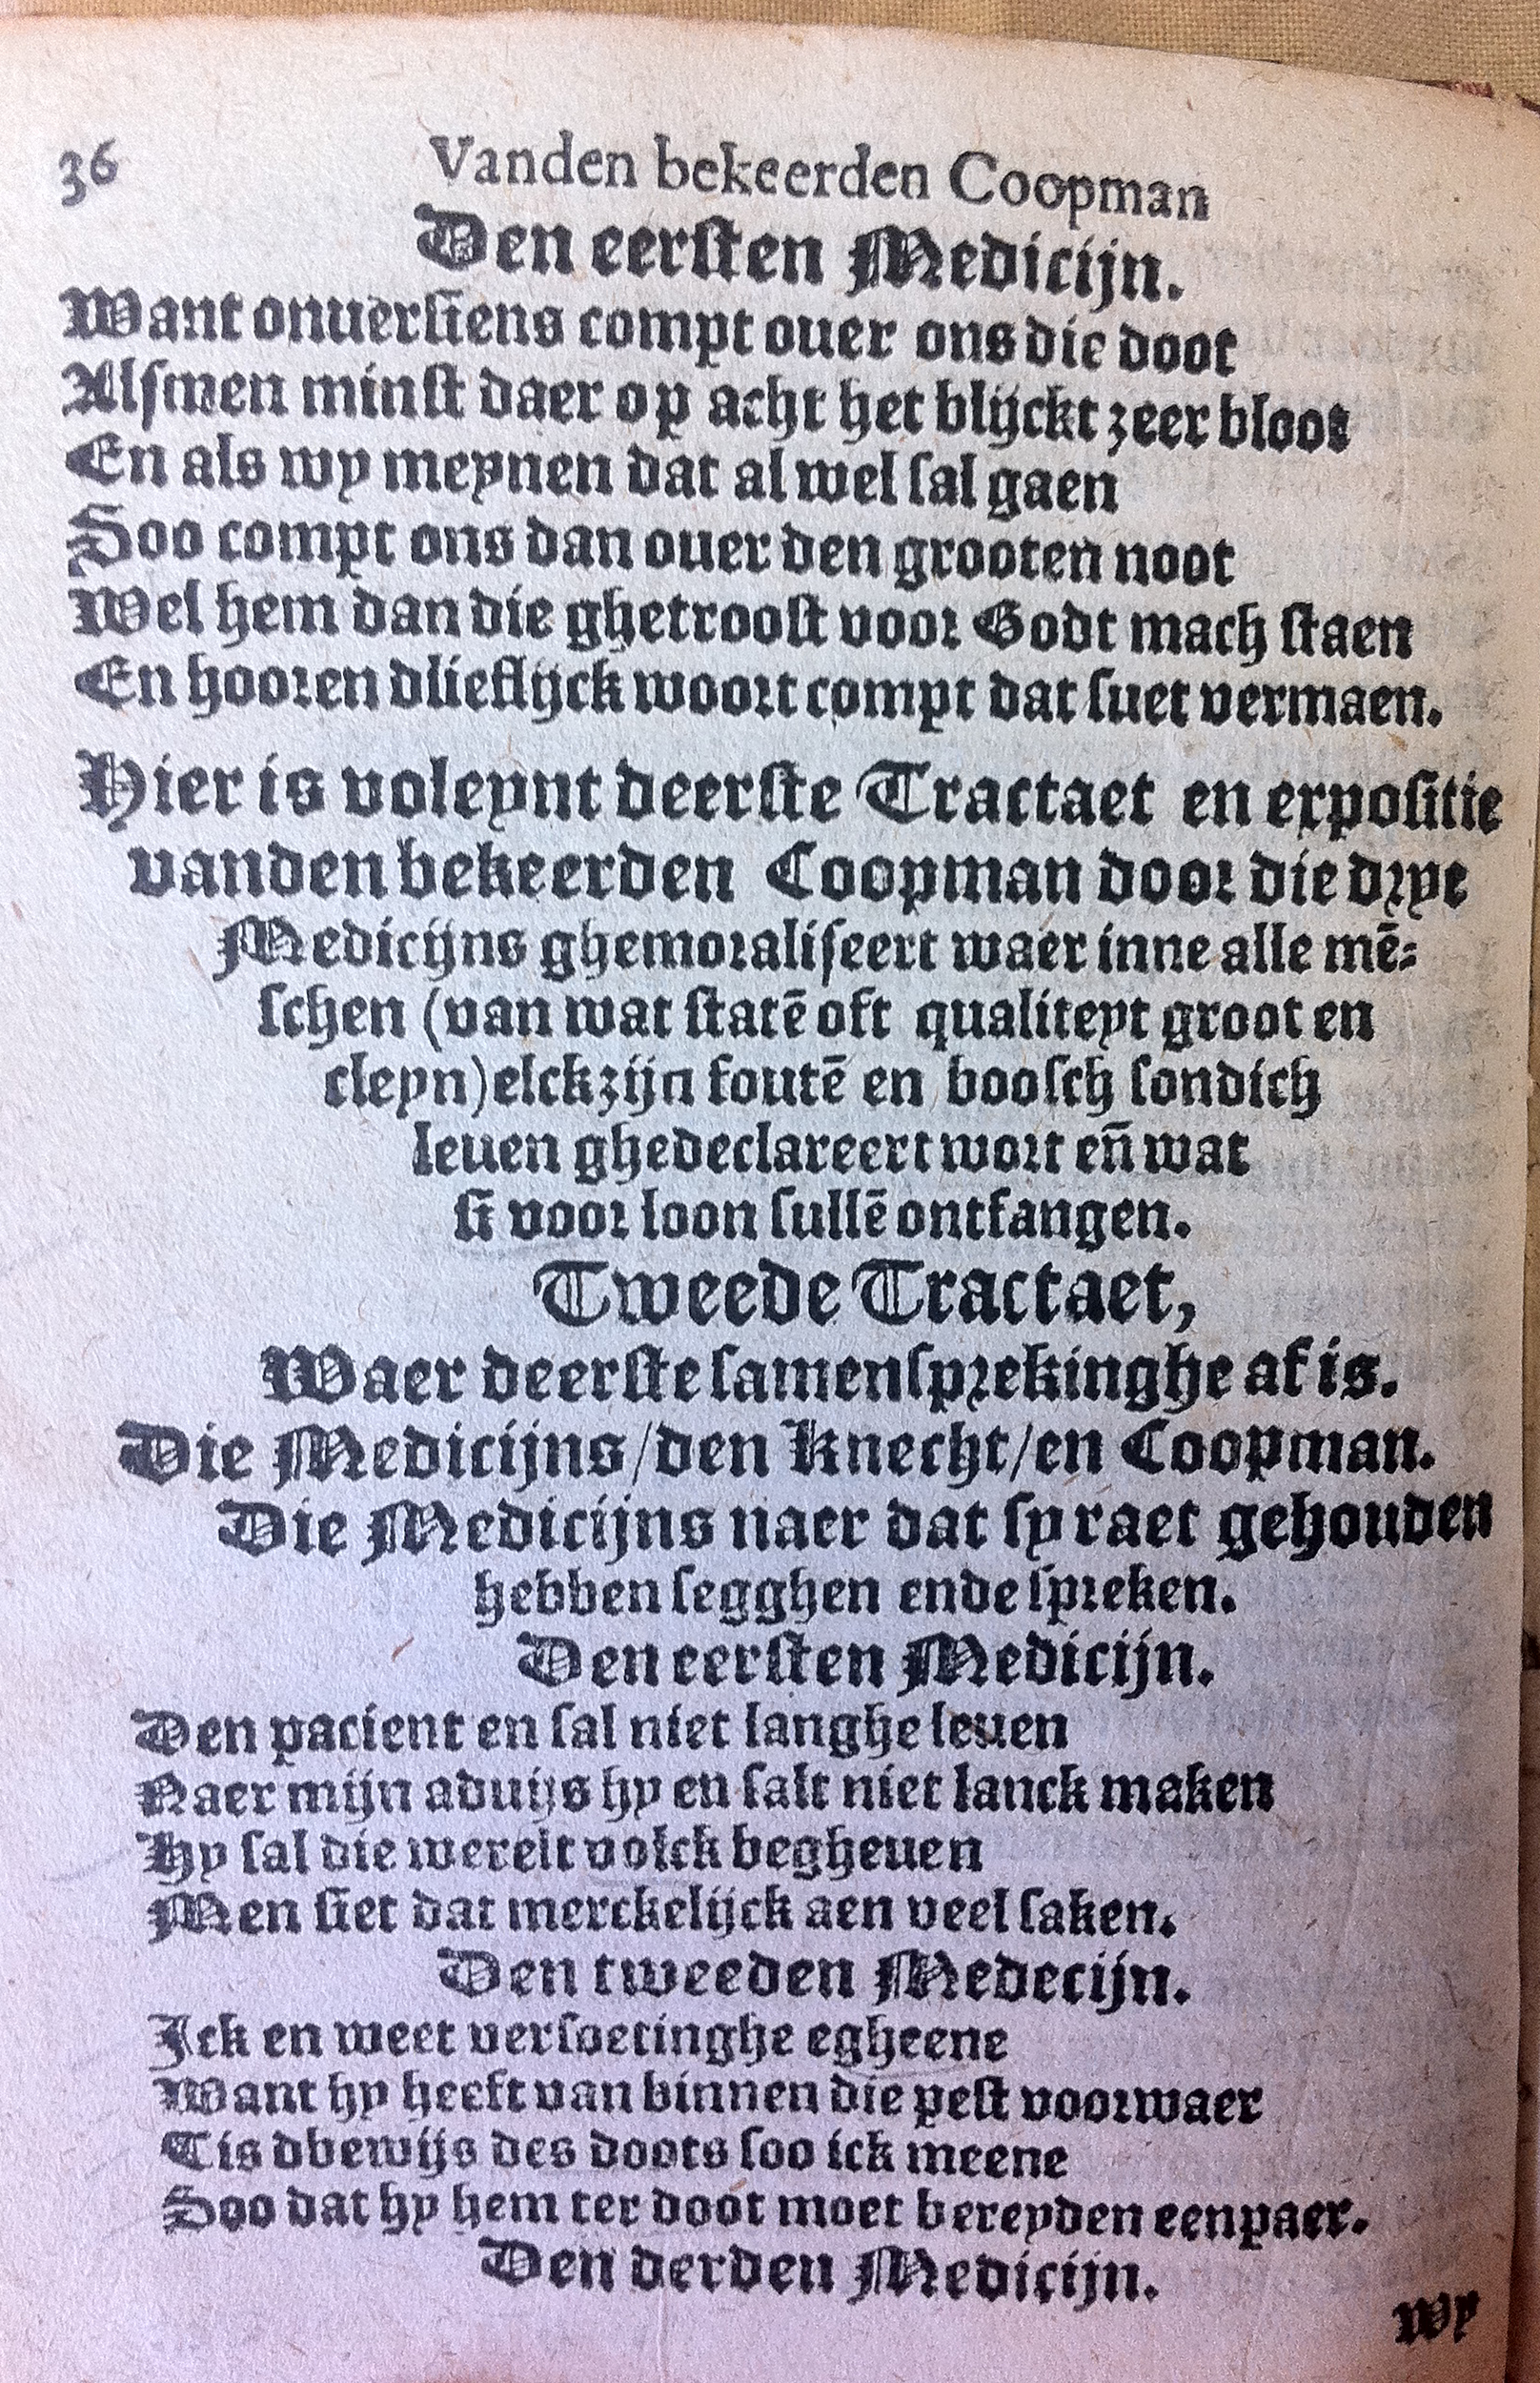 36 Vanden bekeerden Coopman
Den eersten Medicijn.
Want onuersiens compt ouer ons die doot
Alsmen minst daer op acht het blijckt zeer bloot
En als wy meynen dat al wel sal gaen
Soo compt ons dan ouer den grooten noot
Wel hem dan die ghetroost voor Godt mach staen
En hooren dlieflijck woort compt dat suet vermaen.
Hier is voleynt deerste Tractaet en expositie
vanden bekeerden Coopman door die drye
Medicijns ghemoraliseert waer inne alle mē-
schen (van wat statē oft qualiteyt groot en
cleyn) elck zijn foutē en boosch sondich
leuen ghedeclareert wort eñ wat
si voor loon sullē ontfangen.
Tweede Tractaet,
Waer deerste samensprekinghe af is.
Die Medicijns/den Knecht/en Coopman.
Die Medicijns naer dat sy raet gehouden
hebben segghen ende spreken.
Den eersten Medicijn.
Den pacient en sal niet langhe leuen
Naer mijn aduijs hy en salt niet lanck maken
Hy sal die werelt volck begheuen
Men siet dat merckelijck aen veel saken.
Den tweeden Medecijn.
Ick en weet versoetinghe egheene
Want hy heeft van binnen die pest voorwaer
Tis dbewijs des doots soo ick meene
Soo dat hy hem ter doot moet bereyden eenpaer.
Den derden Medicijn.
Wy